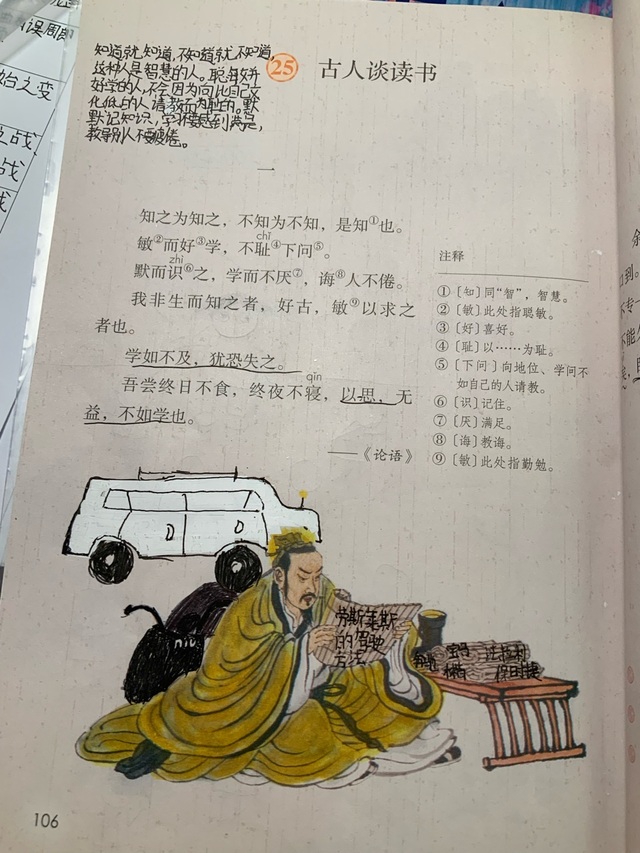 误周郎
始之变
战
战
知道就知道,不知道就不知道,
这种人是智慧的人。聪敏又
好学的人,不会因为向比自己文
化低的人请教而为耻的。默
默记知识,学习不要感到满足,
教导别人不要疲倦。
25 古人谈读书
一
知之为知之,不知为不知,是知①也。
chǐ
敏②而好③学,不耻④下问⑤。
zhì
默而识⑥之,学而不厌⑦,诲⑧人不倦。
我非生而知之者,好古,敏⑨以求之
者也。
学如不及,犹恐失之。
qǐn
吾尝终日不食,终夜不寝,以思,无
益,不如学也。
——《论语》
注释
①〔知〕同“智”,智慧。
②〔敏〕此处指聪敏。
③〔好〕喜好。
④〔耻〕以……为耻。
⑤〔下问〕向地位、学问不
如自己的人请教。
⑥〔识〕记住。
⑦〔厌〕满足。
⑧〔诲〕教诲。
⑨〔敏〕此处指勤勉。
D D
niu
劳斯莱斯
的驾驶
方法
奔驰 宝马 法拉利
保时捷
106